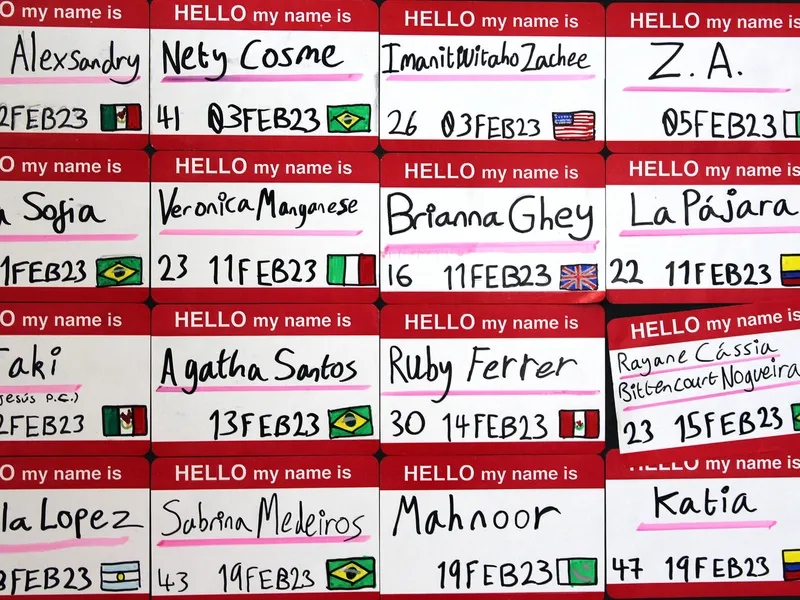 O my name is
Alexsandry
2FEB23
HELLO my name is
Nety Cosme
41 03FEB23
HELLO my name is
ImanitWitaho Zachee
26 03FEB23
HELLO my name is
Z.A.
05FEB23
O my name is
a Sofia
1FEB23
HELLO my name is
Veronica Manganese
23 11FEB23
HELLO my name is
Brianna Ghey
16 11FEB23
HELLO my name is
La Pájara
22 11FEB23
O my name is
Taki
Jesús P.C.)
2FEB23
HELLO my name is
Agatha Santos
13FEB23
HELLO my name is
Ruby Ferrer
30 14FEB23
HELLO my name is
Rayane Cássia
Bittencourt Nogueira
23 15FEB23
O my name is
la Lopez
FEB23
HELLO my name is
Sabrina Medeiros
43 19FEB23
HELLO my name is
Mahnoor
19FEB23
HELLO my name is
Katia
47 19FEB23